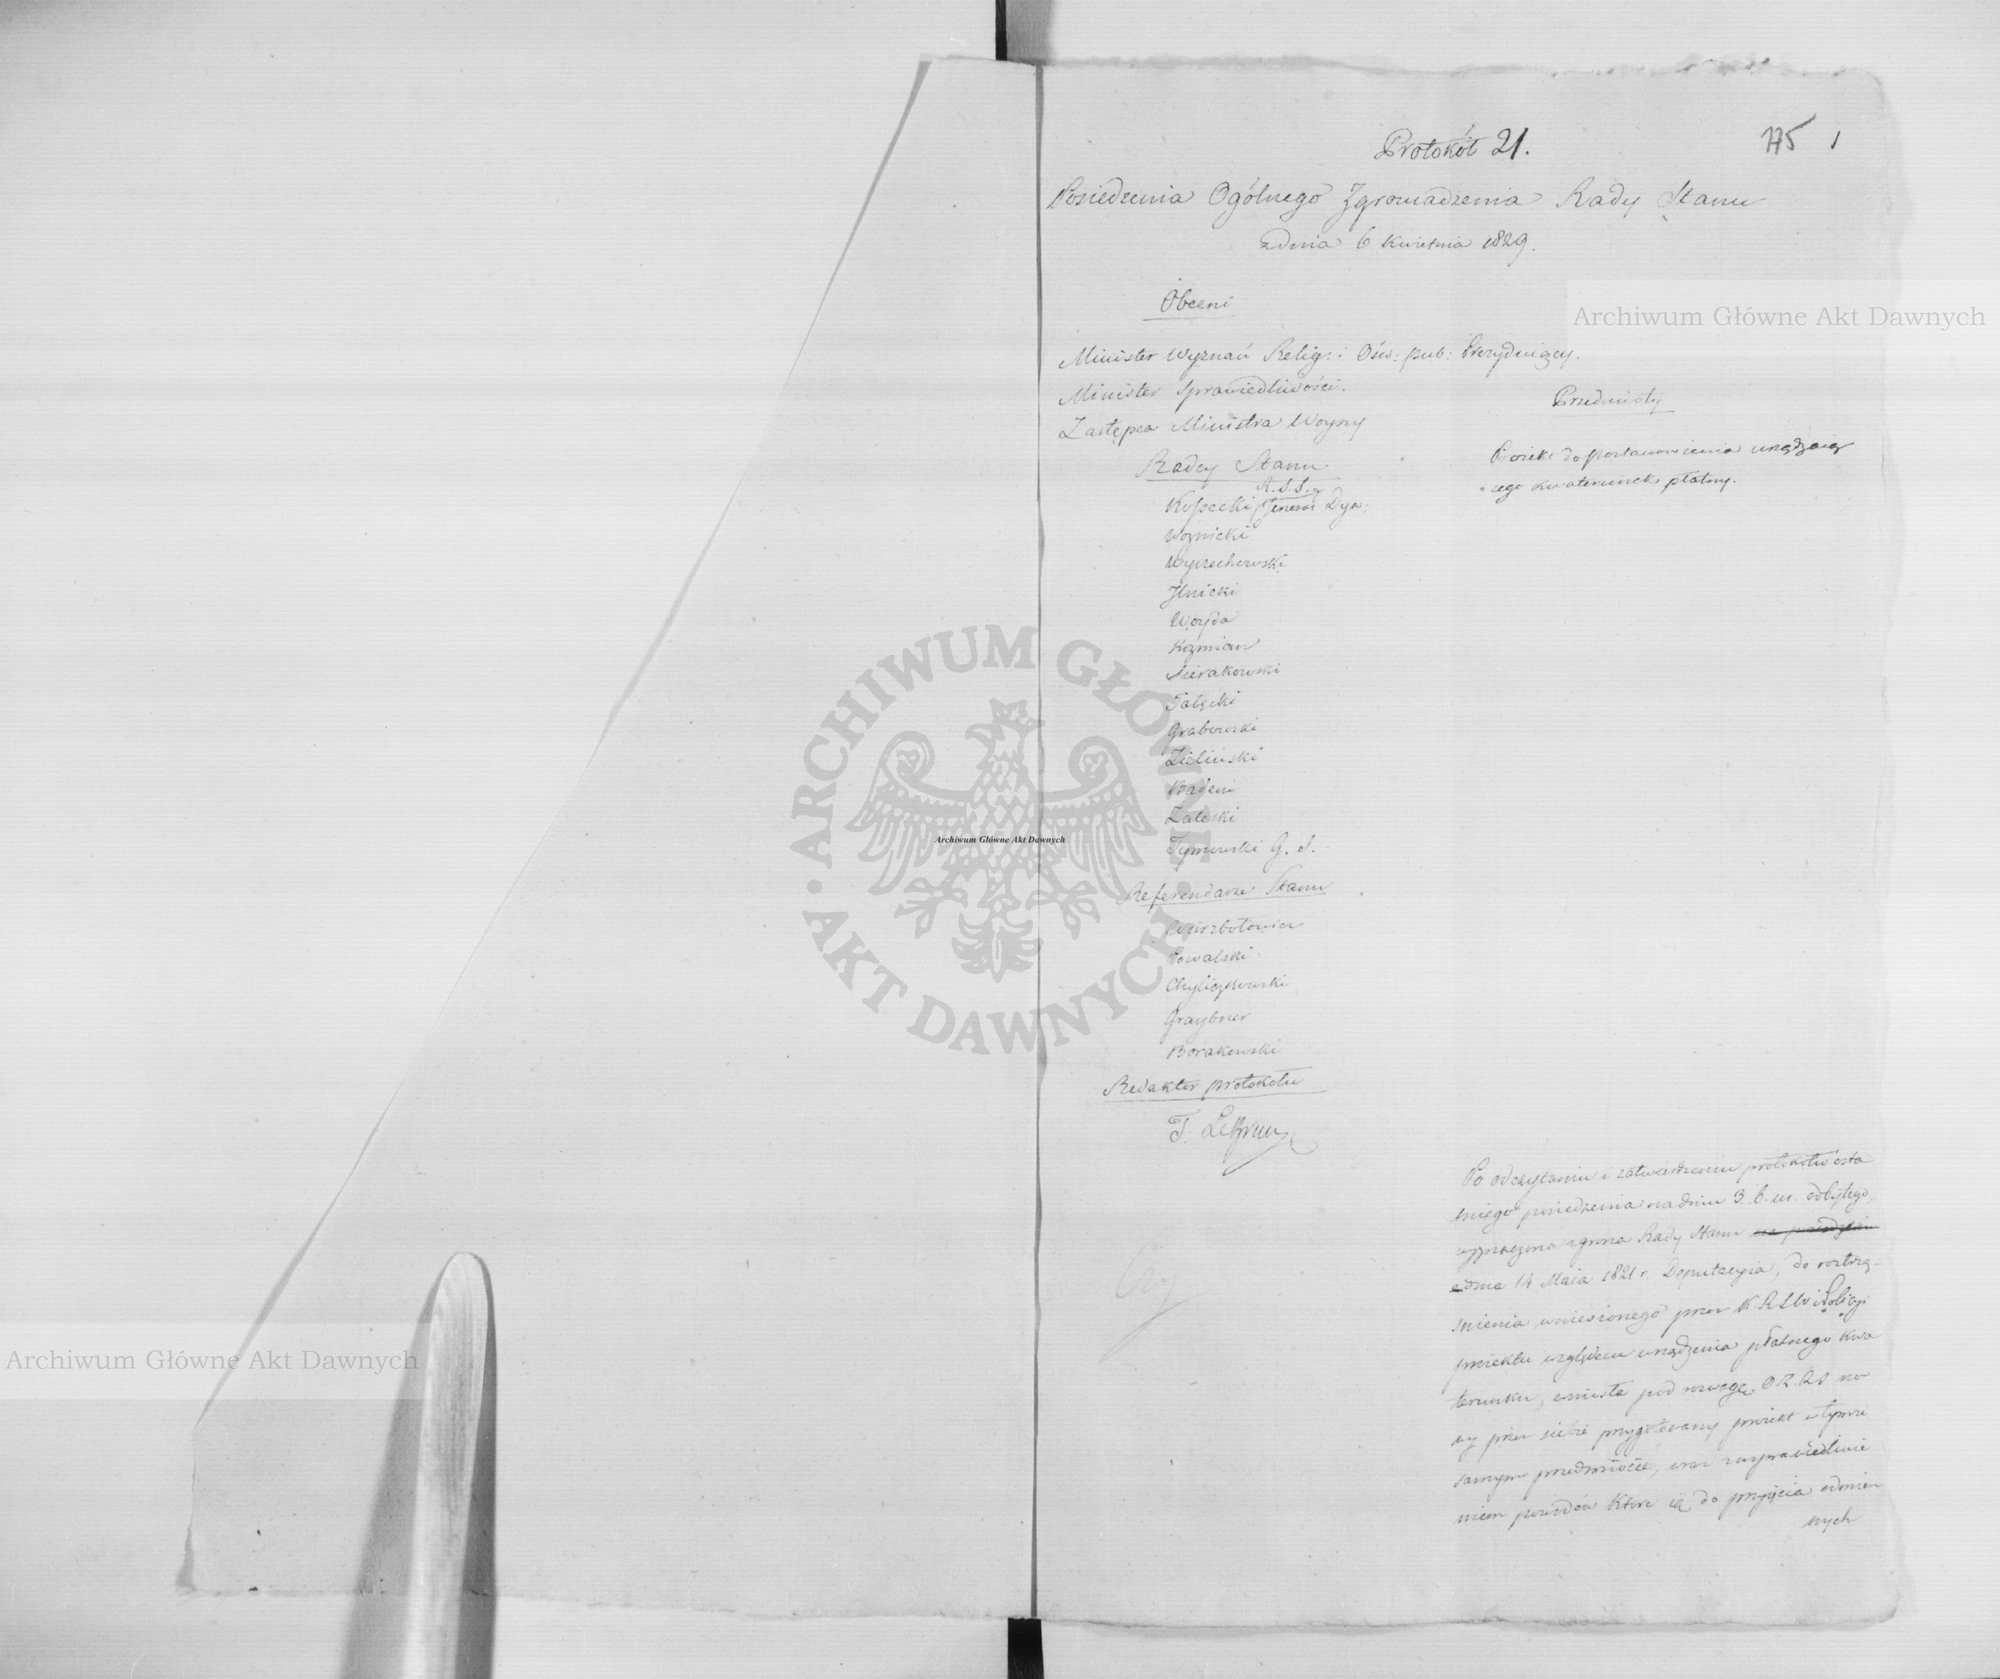 Protokół 21.
775 1
Posiedzenia Ogólnego Zgromadzenia Rady Stanu
z dnia 6 Kwietnia 1829.
Obecni
Minister Wyznań Relig: i Ośw: pub: Prezyduiący.
Minister Sprawiedliwości.
Zastępca Ministra Woyny
Radcy Stanu
R. S. S.
Kossecki Jenerał Dyw:
Woźnicki
Wyczechowski
Ilnicki
Woyda
Koźmian
Sierakowski
Grabowski
Zieliński
Badeni
Zaleski
Tymowski G. S.
Referendarze Stanu
Wierzbołowicz
Kowalski
Chyliczkowski
Graybner
Borakowski
Redaktor protokołu
T. Le Brun
Przedmioty
Proiekt do postanowienia urządzaią
cego kwaterunek płatny.
Po odczytaniu i zatwierdzeniu protokołu osta
tniego posiedzenia na dniu 3. b. m. odbytego,
wyznaczona z grona Rady Stanu
dnia 14 Maia 1821 r. Deputacyia, do roztrzą-
śnienia wniesionego przez K. R. S. W. i Policyi
proiektu względem urządzenia płatnego kwa
terunku, wniosła pod rozwagę O. Z. R. S. no
wy przez siebie przygotowany proiekt w tymże
samym przedmiocie, wraz z usprawiedliwie
niem powodów które ią do przyięcia odmien
nych
Archiwum Główne Akt Dawnych
Archiwum Główne Akt Dawnych
Archiwum Główne Akt Dawnych
ARCHIWUM GŁÓWNE AKT DAWNYCH